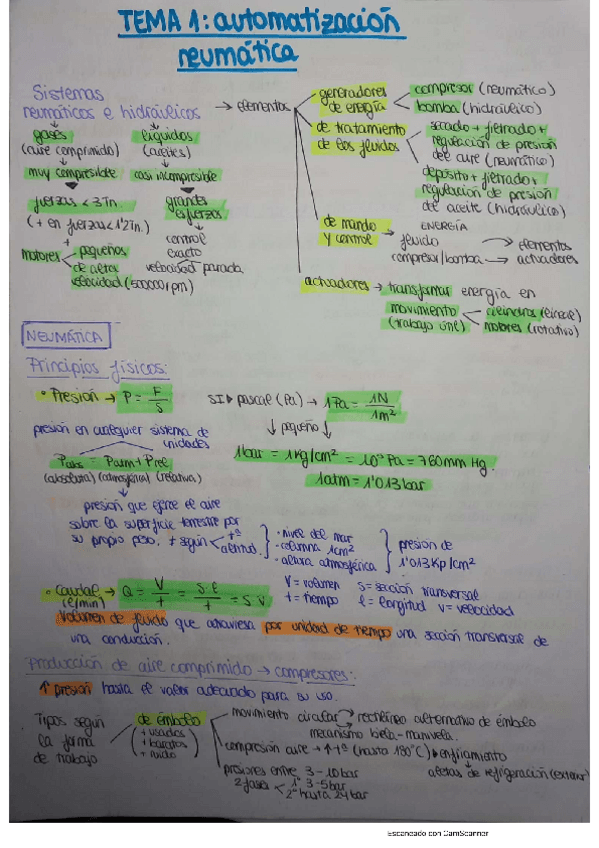 TEMA 1: automatización
neumática
Sistemas
neumáticos e hidráulicos → elementos
generadores de energía
compresor (neumático)
bomba (hidráulico)
de tratamiento de los fluidos
secado + filtrado +
regulación de presión
del aire (neumático)
depósito + filtrado +
regulación de presión
del aceite (hidráulico)
de mando y control
ENERGÍA
fluido → elementos
compresor/bomba → actuadores
actuadores → transformar energía en
movimiento (trabajo útil)
cilindros (lineal)
motores (rotativo)
gases
(aire comprimido)
muy compresible
fuerzas < 3Tn.
(+ en fuerzas < 1'2Tn.)
+
motores → pequeños
de alta
velocidad (500000 rpm)
líquidos
(aceites)
casi incompresible
grandes
esfuerzos
control
exacto
velocidad parada
NEUMÁTICA
Principios físicos:
• Presión → P = F/S
SI ▸ pascal (Pa) → 1Pa = 1N/1m²
↓ pequeño ↓
presión en cualquier sistema de
unidades
1bar = 1kg/cm² = 10⁵ Pa = 760mm Hg.
1atm = 1'013bar
Pabs = Patm + Prel
(absoluta) (atmosférica) (relativa)
presión que ejerce el aire
sobre la superficie terrestre por
su propio peso. + según < tª altitud.
· nivel del mar
· columna 1cm²
· altura atmosférica
presión de
1'013Kp/cm²
• Caudal → Q = V/t = S·l/t = S·v
(l/min)
V = volumen S = sección transversal
t = tiempo l = longitud v = velocidad
Volumen de fluido que atraviesa por unidad de tiempo una sección transversal de
una conducción.
Producción de aire comprimido → compresores:
↑ presión hasta el valor adecuado para su uso.
Tipos según
la forma
de trabajo
de émbolo
(+ usados
+ baratos
+ ruido)
movimiento circular → rectilíneo alternativo de émbolo
mecanismo biela-manivela.
compresión aire → ↑ tª (hasta 180°C) ▸ enfriamiento
aletas de refrigeración (exterior)
presiones entre 3-10bar
2 fases < 1ª 3-5bar
2ª hasta 24bar
Escaneado con CamScanner